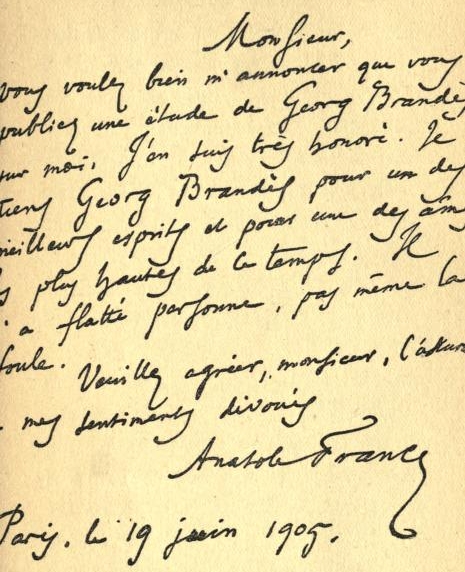 Monsieur,
vous voulez bien m'annoncer que vous
publiez une étude de Georg Brandès
sur moi. J'en suis très honoré. Je
tiens Georg Brandès pour un des
meilleurs esprits et pour une des âmes
s plus hautes de ce temps. Il
'a flatté personne, pas même la
foule. Veuillez agréer, monsieur, l'assura
mes sentiments dévoués
Anatole France
Paris, le 19 juin 1905.